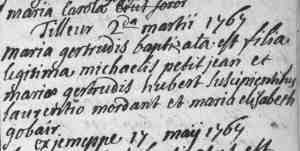 maria Carola Brut soror
Tilleur 2da martii 1767
maria gertrudis baptizata est filia
legitima michaelis petit jean et
mariae gertrudis hubert suscipientibus
laurentio mordant et maria elisabeth
gobair.
ex jemeppe 17 maij 1767